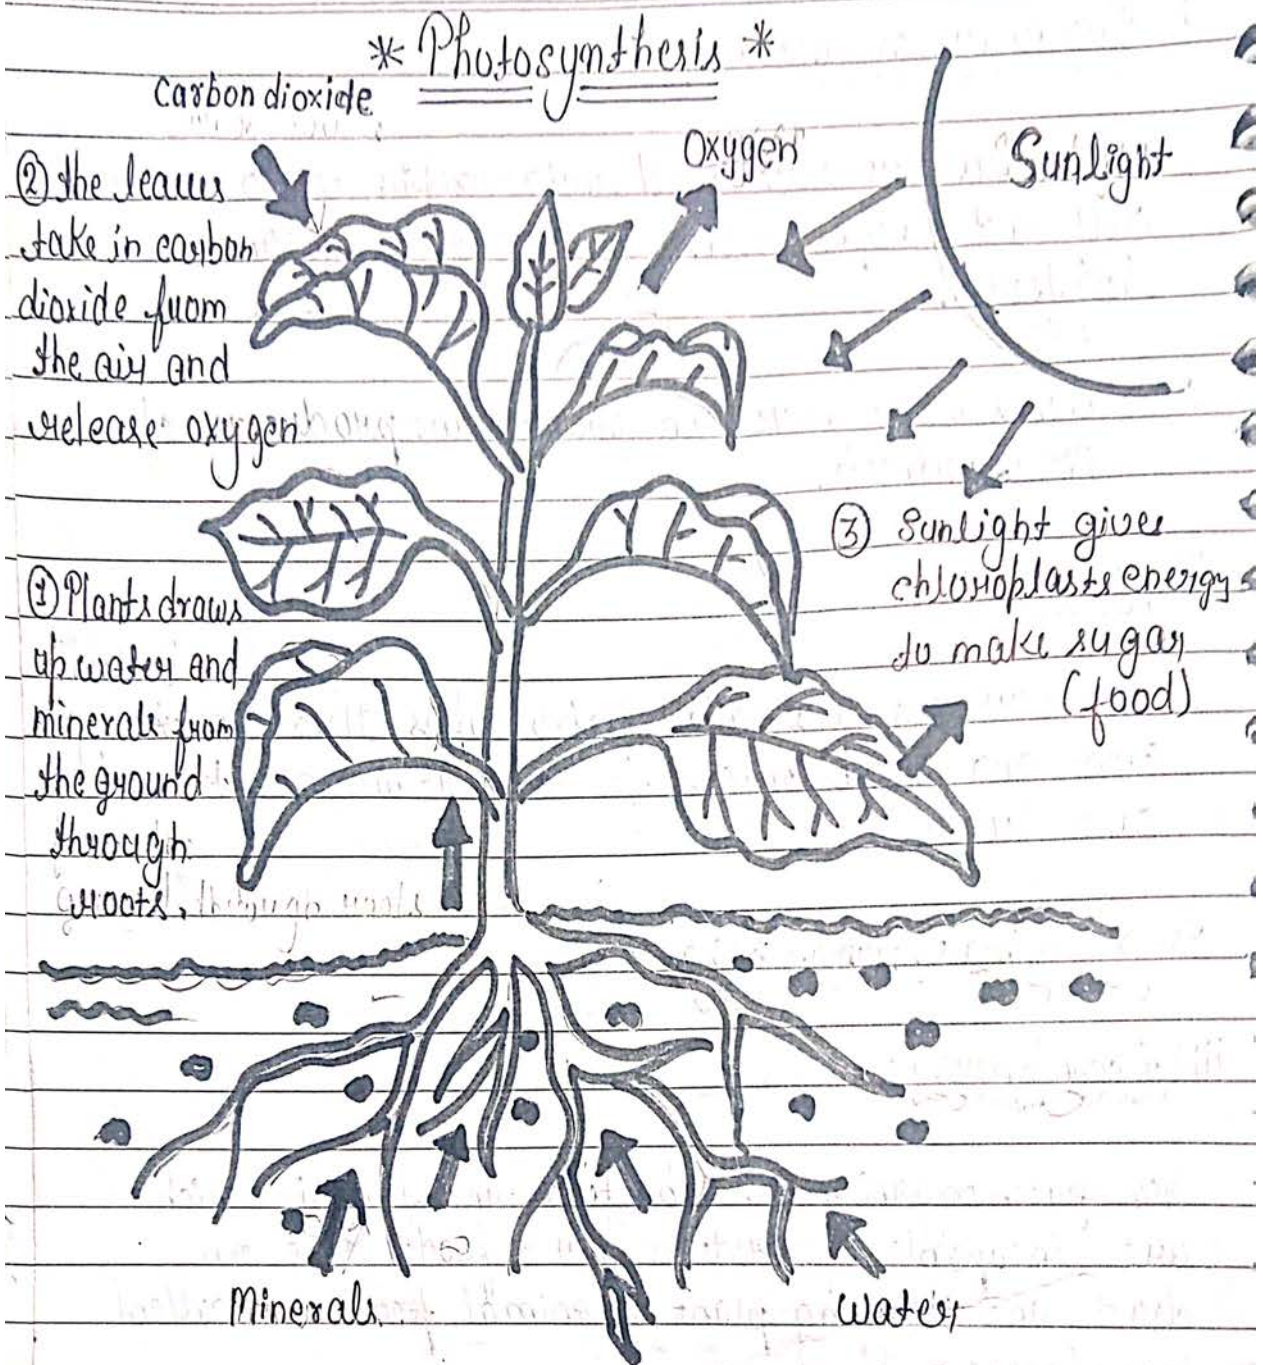 * Photosynthesis *
Carbon dioxide
Oxygen
Sunlight
② the leaves
take in carbon
dioxide from
the air and
release oxygen
③ Sunlight gives
chloroplasts energy
to make sugar
(food)
① Plants draws
up water and
minerals from
the ground
through
roots.
Minerals
water